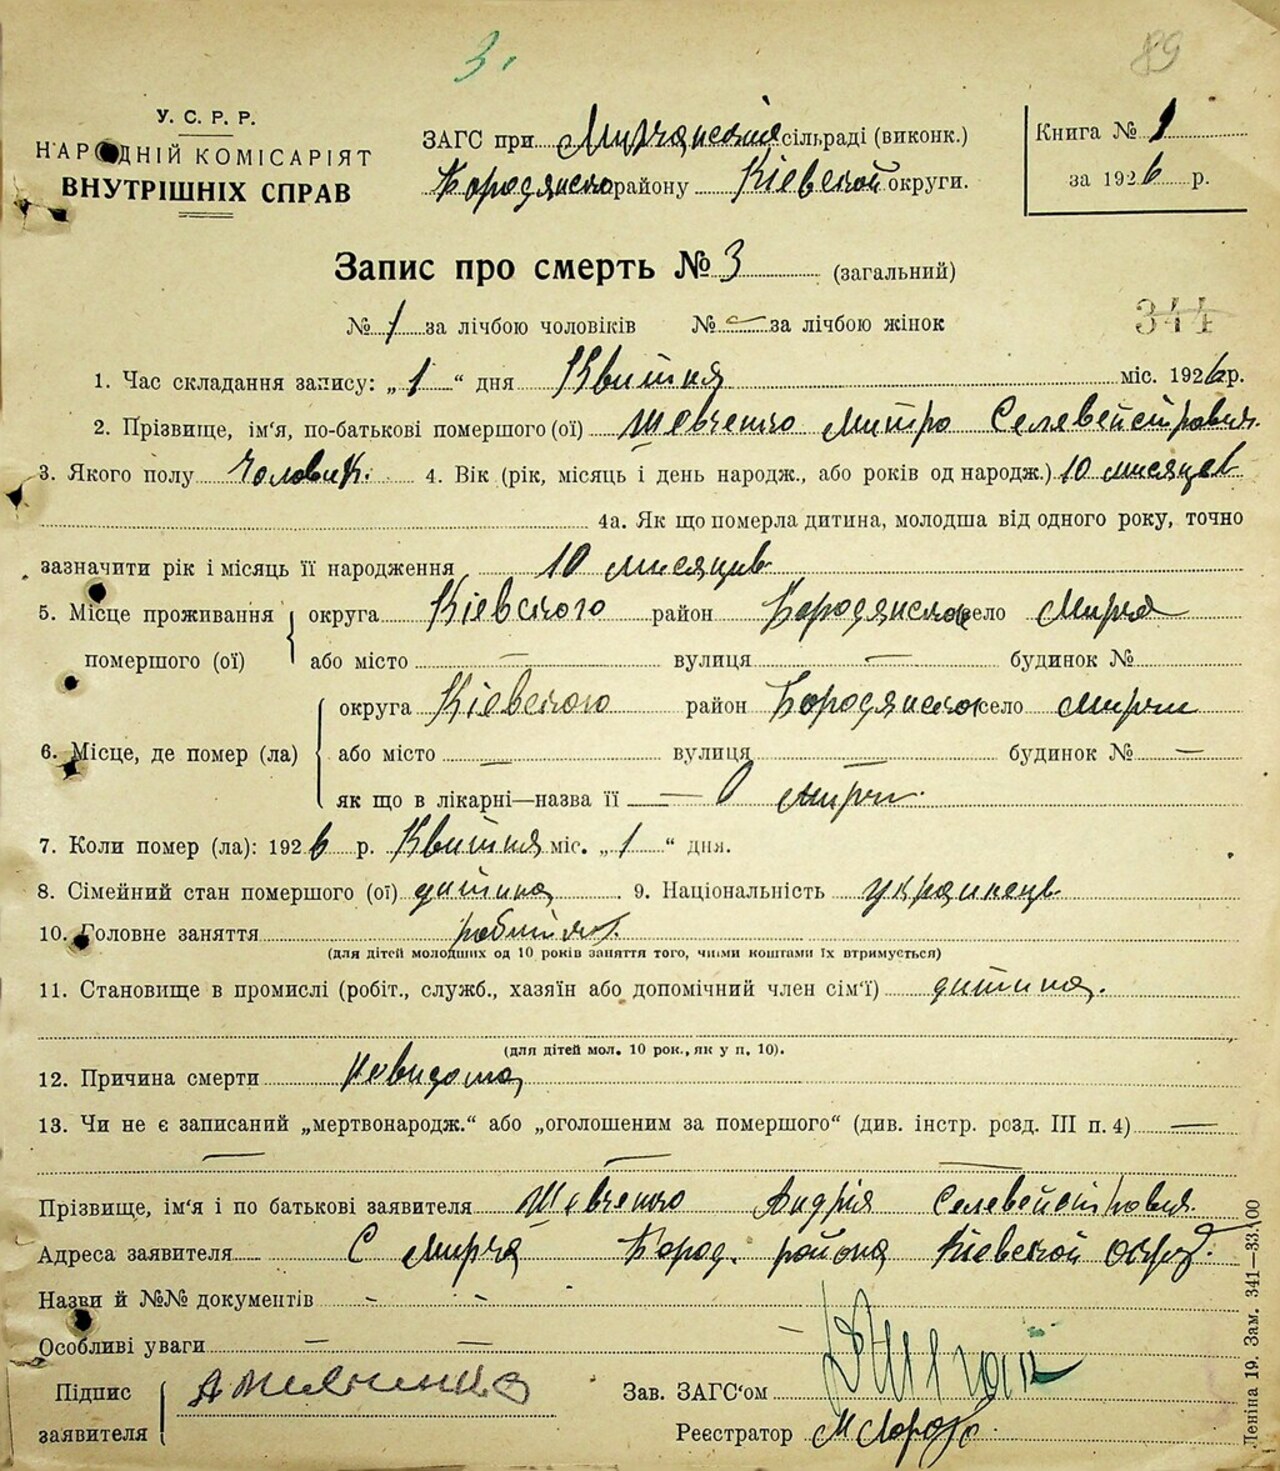 3.
89
У. С. Р. Р.
НАРОДНІЙ КОМІСАРІЯТ
ВНУТРІШНІХ СПРАВ
ЗАГС при Мирчанській сільраді (виконк.)
Бородянсько району Кіевской округи.
Книга № 1
за 1926 р.
Запис про смерть № 3 (загальний)
№ 1 за лічбою чоловіків № — за лічбою жінок
344
1. Час складання запису: „1“ дня Квитня міс. 1926 р.
2. Прізвище, ім‘я, по-батькові помершого (ої) Шевченко Митро Селевейстрович.
3. Якого полу Чоловик. 4. Вік (рік, місяць і день народж., або років од народж.) 10 мисяцев
4а. Як що померла дитина, молодша від одного року, точно
зазначити рік і місяць її народження 10 мисяцив
5. Місце проживання помершого (ої) округа Кіевского район Бородянсько село Мирча
або місто — вулиця — будинок №
6. Місце, де помер (ла) округа Кіевского район Бородянского село Мирчи
або місто — вулиця — будинок № —
як що в лікарні—назва її — В Мирчи.
7. Коли помер (ла): 1926 р. Квитня міс. „1“ дня.
8. Сімейний стан помершого (ої) дитина 9. Національність украинець
10. Головне заняття
(для дітей молодших од 10 років заняття того, чиїми коштами їх втримується)
11. Становище в промислі (робіт., служб., хазяїн або допомічний член сім‘ї) дитина.
(для дітей мол. 10 рок., як у п. 10).
12. Причина смерти невидома
13. Чи не є записаний „мертвонародж.“ або „оголошеним за помершого“ (див. інстр. розд. III п. 4) —
— — —
Прізвище, ім‘я і по батькові заявителя Шевченко Андрія Селевейстровия.
Адреса заявителя С Мирча Бород. района Кіевской
Назви й №№ документів - -
Особливі уваги — — —
Підпис заявителя
Зав. ЗАГС‘ом
Реєстратор
Леніна 19. Зам. 341—33.100